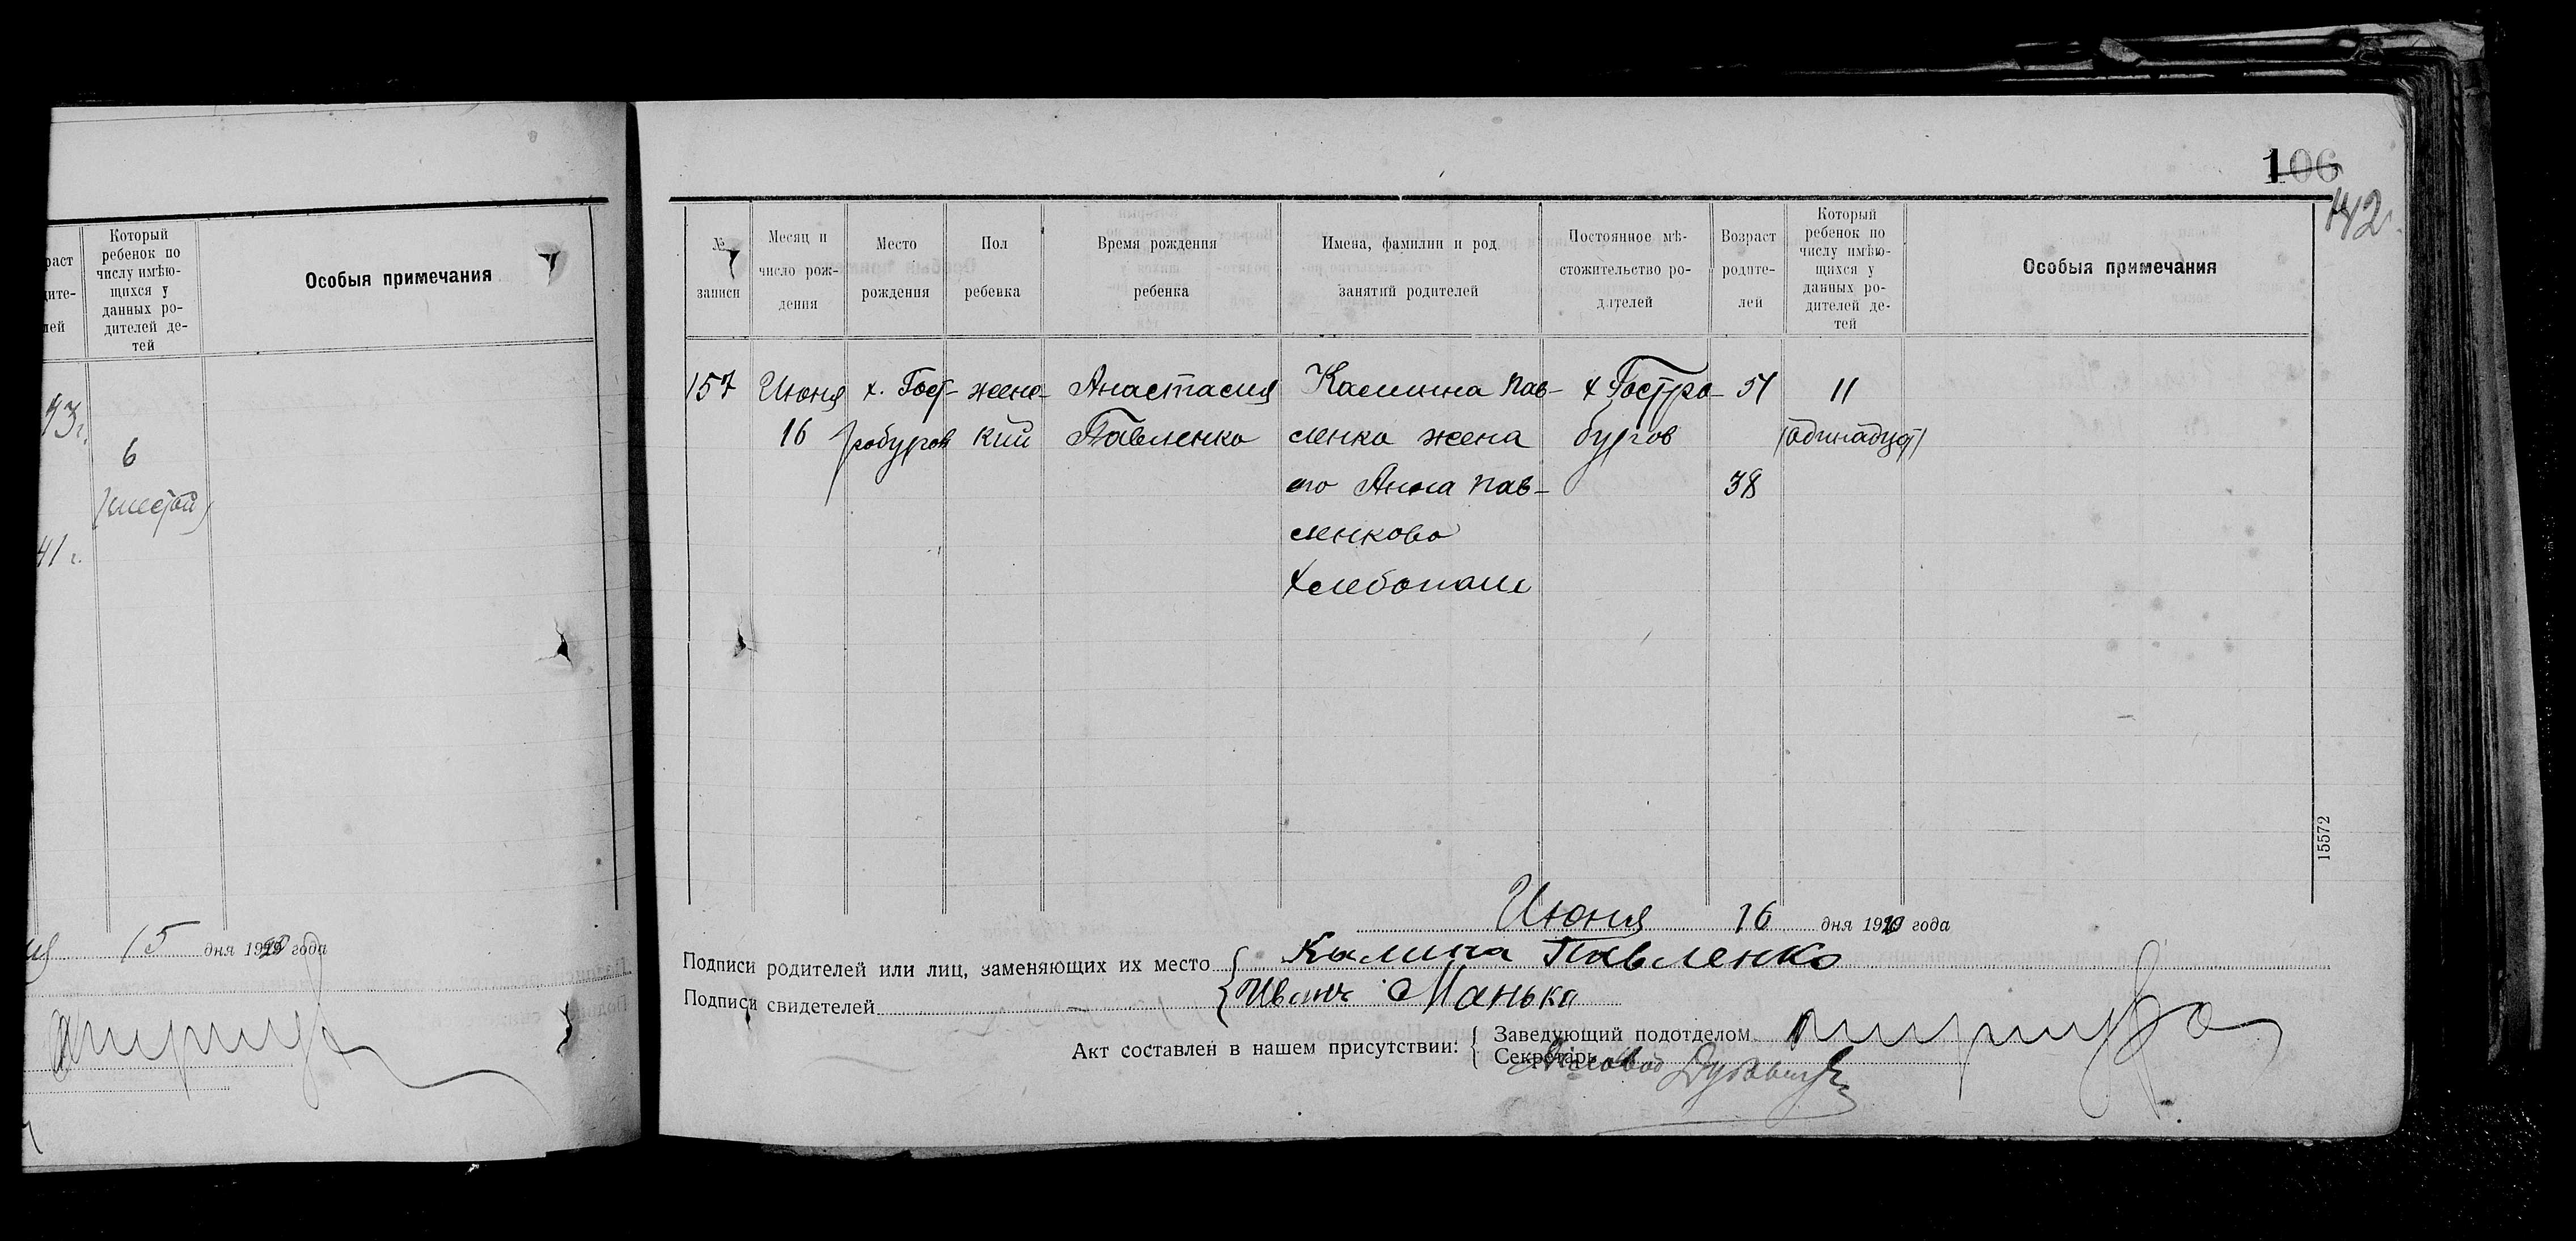 раст
дите-
лей
Который
ребенок по
числу имѣю-
щихся у
данных ро-
дителей де-
тей
Особыя примечания
43г.
6
(шестой)
41 г.
15 дня 1920 года
106
142.
№
записи
Месяц и
число рож-
дения
Место
рождения
Пол
ребенка
Время рождения
ребенка
Имена, фамилии и род
занятий родителей
Постоянное мѣ-
стожительство ро-
дителей
Возраст
родите-
лей
Который
ребенок по
числу имѣю-
щихся у
данных ро-
дителей де-
тей
Особыя примечания
157
Июня
16
х. Гост-
робургов
женс-
кий
Анастасия
Павленко
Калинна Пав-
ленко жена
его Анна Пав-
ленкова
хлебопаш
х Гостро-
бургов
51
38
11
(одинадцат)
15572
Июня 16 дня 1920 года
Подписи родителей или лиц, заменяющих их место Калина Павленко
Подписи свидетелей Иванъ Манько
Акт составлен в нашем присутствии:
Заведующий подотделом
Секретарь